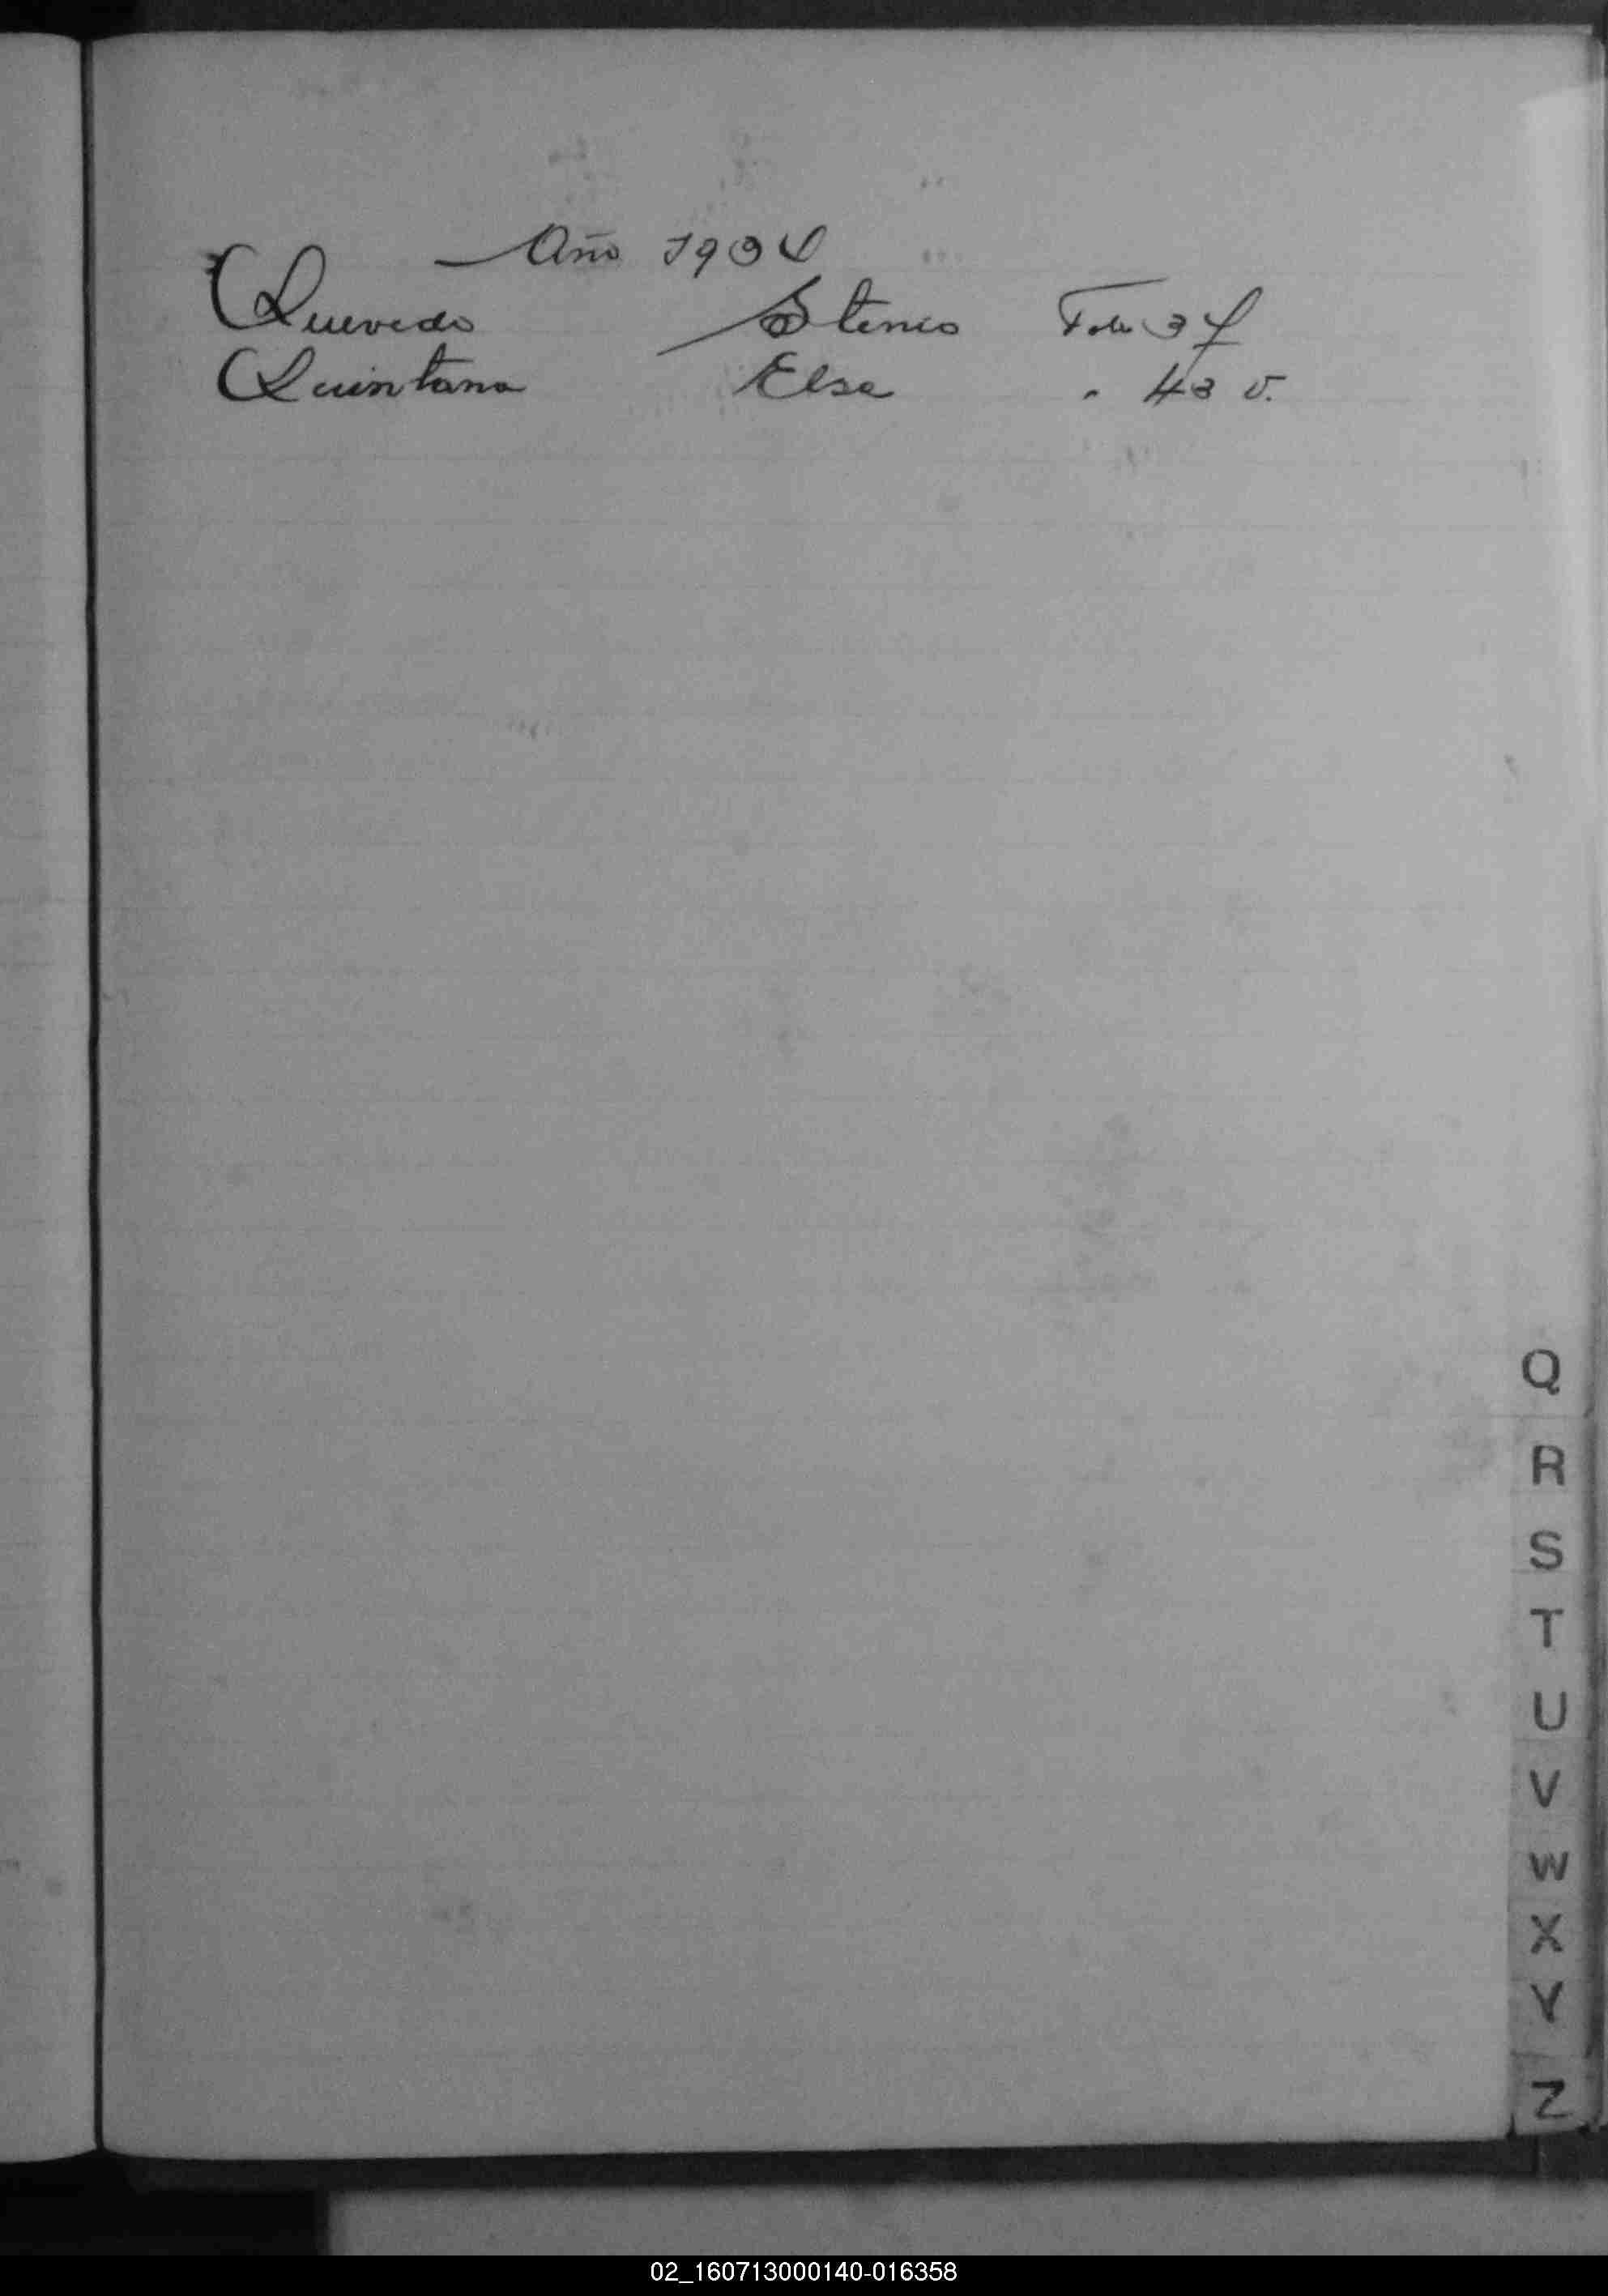 Año 1904
Quevedo Stenio Folio 37
Quintana Elsa " 43 v.
Q
R
S
T
U
V
W
X
Y
Z
02_160713000140-016358